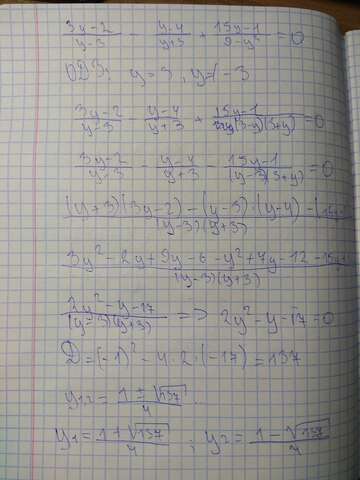 (3y-2)/(y-3) - (y-4)/(y+3) + (15y-1)/(9-y²) = 0
ОДЗ: y≠3, y≠-3
(3y-2)/(y-3) - (y-4)/(y+3) + (15y-1)/((3-y)(3+y)) = 0
(3y-2)/(y-3) - (y-4)/(y+3) - (15y-1)/((y-3)(3+y)) = 0
((y+3)(3y-2) - (y-3)·(y-4) - (15y
(y-3)(y+3)
3y² - 2y + 9y - 6 - y² + 7y - 12 - 15y
(y-3)(y+3)
(2y²-y-17)/((y-3)(y+3)) => 2y²-y-17=0
D = (-1)² - 4·2·(-17) = 137
y1,2 = (1±√137)/4
y1 = (1+√137)/4 ; y2 = (1-√137)/4